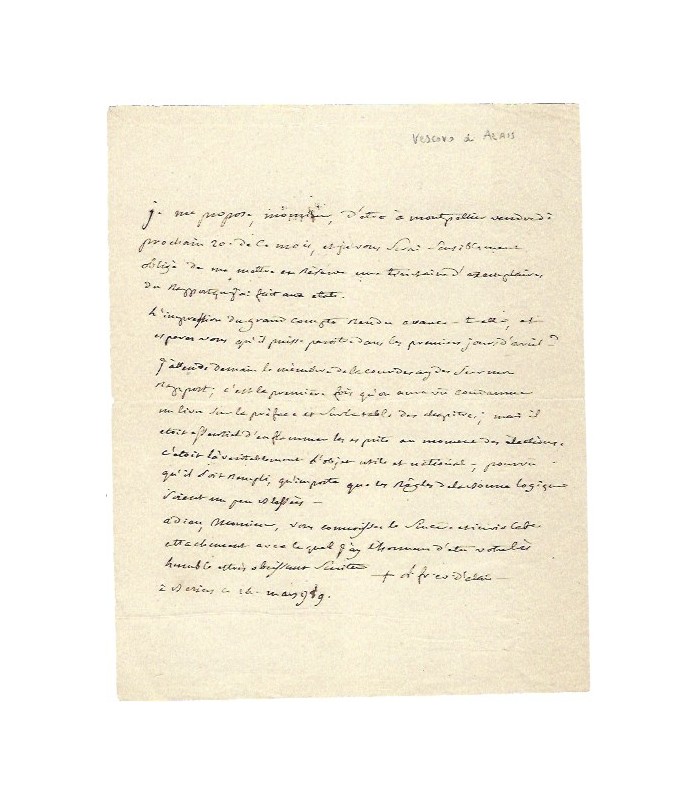 Vescovo d'Alais
je me propose, monsieur, d'etre à montpellier vendredi
prochain 20. de ce mois, et je vous serai sensiblement
obligé de me mettre en reserve une trentaine d'exemplaires
du Rapport que j'ai fait aux etats.
L'impression du grand compte Rendu avance-t-elle, et
esperez vous qu'il puisse paroitre dans les premiers jours d'avril?
j'attends demain le mémoire de la cour des aydes sur mon
Rapport; c'est la première fois qu'on aura vu condamner
un livre sur la préface et sur la table des chapitres; mais il
etoit essentiel d'enflammer les esprits au moment des élections.
c'étoit là véritablement l'objet utile et national, pourvu
qu'il soit Rempli, qu'importe que les Règles de la bonne logique
soient un peu blessées —
adieu, Monsieur, vous connoissez le sincere et inviolable
attachement avec lequel j'ay l'honneur d'etre votre très
humble et très obeissant serviteur
+ év d'alais —
à mars